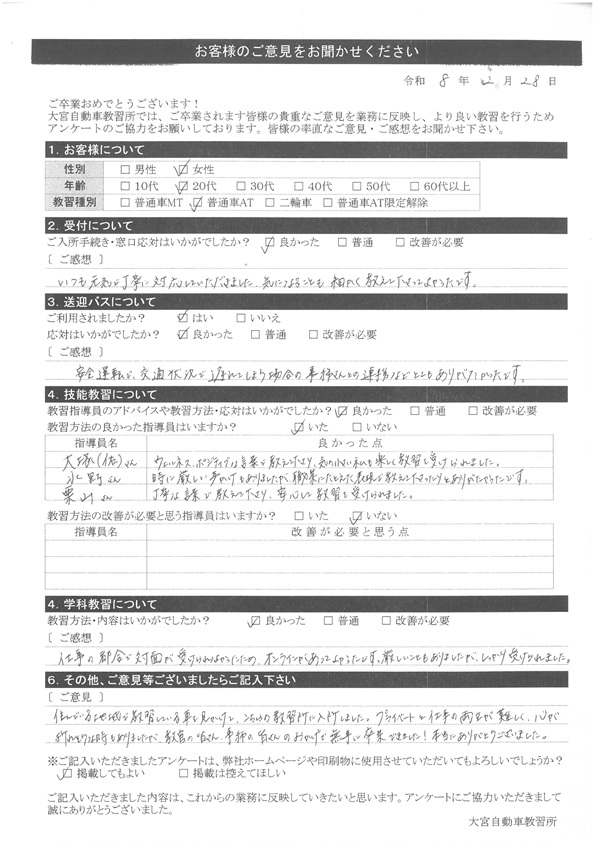 お客様のご意見をお聞かせください
令和 8 年 2 月 28 日
ご卒業おめでとうございます！
大宮自動車教習所では、ご卒業されます皆様の貴重なご意見を業務に反映し、より良い教習を行うため
アンケートのご協力をお願いしております。皆様の率直なご意見・ご感想をお聞かせ下さい。
1. お客様について
性別 □ 男性 ☑ 女性
年齢 □ 10代 ☑ 20代 □ 30代 □ 40代 □ 50代 □ 60代以上
教習種別 □ 普通車MT ☑ 普通車AT □ 二輪車 □ 普通車AT限定解除
2. 受付について
ご入所手続き・窓口応対はいかがでしたか？ ☑ 良かった □ 普通 □ 改善が必要
〔 ご感想 〕
いつも元気で丁寧に対応していただきました。気になることも細かく教えて下さってよかったです。
3. 送迎バスについて
ご利用されましたか？ ☑ はい □ いいえ
応対はいかがでしたか？ ☑ 良かった □ 普通 □ 改善が必要
〔 ご感想 〕
安全運転で、交通状況で遅れてしまう場合の事務さんとの連携などとてもありがたかったです。
4. 技能教習について
教習指導員のアドバイスや教習方法・応対はいかがでしたか？ ☑ 良かった □ 普通 □ 改善が必要
教習方法の良かった指導員はいますか？ ☑ いた □ いない
指導員名 良かった点
大塚(佐)さん ポジティブな言葉で教えて下さり、気の小さい私も楽しく教習を受けられました。
水野さん 時に厳しい声かけもありましたが、職業にたとえた表現で教えて下さったりとありがたかったです。
栗山さん 丁寧な言葉で教えて下さり、安心して教習を受けられました。
教習方法の改善が必要と思う指導員はいますか？ □ いた ☑ いない
指導員名 改善が必要と思う点
4. 学科教習について
教習方法・内容はいかがでしたか？ ☑ 良かった □ 普通 □ 改善が必要
〔 ご感想 〕
仕事の都合で対面が受けられなかったため、オンラインがあってよかったです。厳しいこともありましたが、しっかり受けられました。
6. その他、ご意見等ございましたらご記入下さい
〔 ご意見 〕
住んでいる地域で教習している車を見かけて、こちらの教習所に入所しました。プライベートと仕事の両立が難しく、心が
折れそうな時もありましたが、教官の皆さん、事務の皆さんのおかげで無事に卒業できました！本当にありがとうございました。
※ご記入いただきましたアンケートは、弊社ホームページや印刷物に使用させていただいてもよろしいでしょうか？
☑ 掲載してもよい □ 掲載は控えてほしい
ご記入いただきました内容は、これからの業務に反映していきたいと思います。アンケートにご協力いただきまして
誠にありがとうございました。
大宮自動車教習所